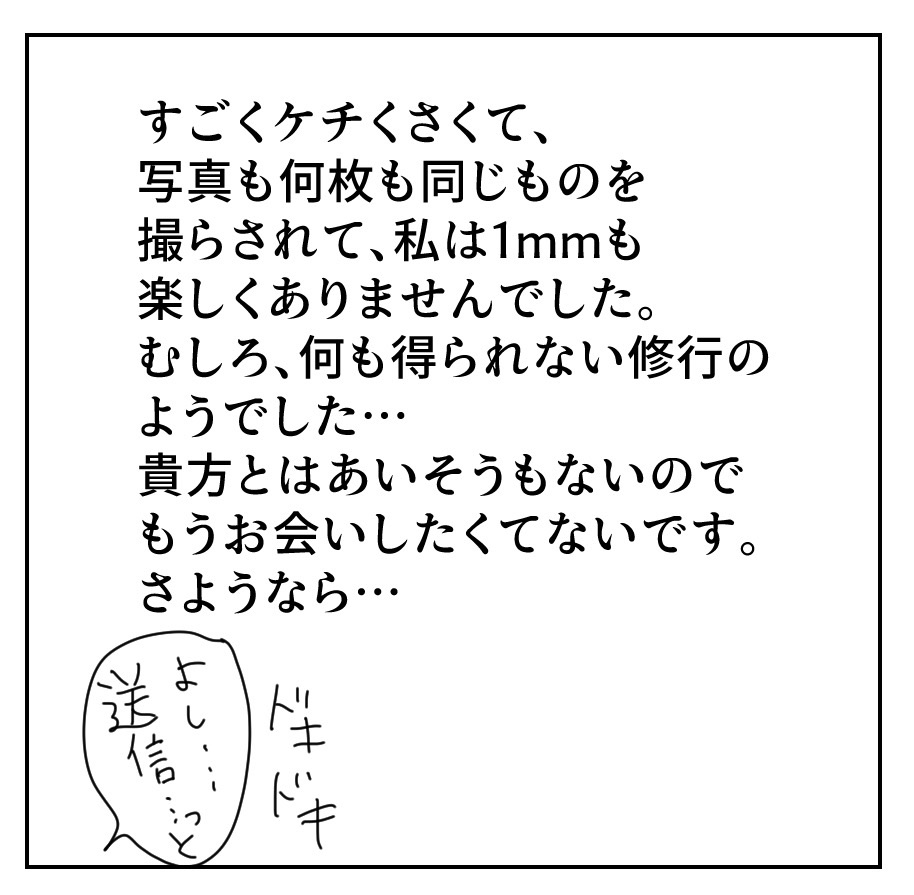 すごくケチくさくて、
写真も何枚も同じものを
撮らされて、私は1mmも
楽しくありませんでした。
むしろ、何も得られない修行の
ようでした…
貴方とはあいそうもないので
もうお会いしたくてないです。
さようなら…
よし……
送信…っと
ドキ
ドキ